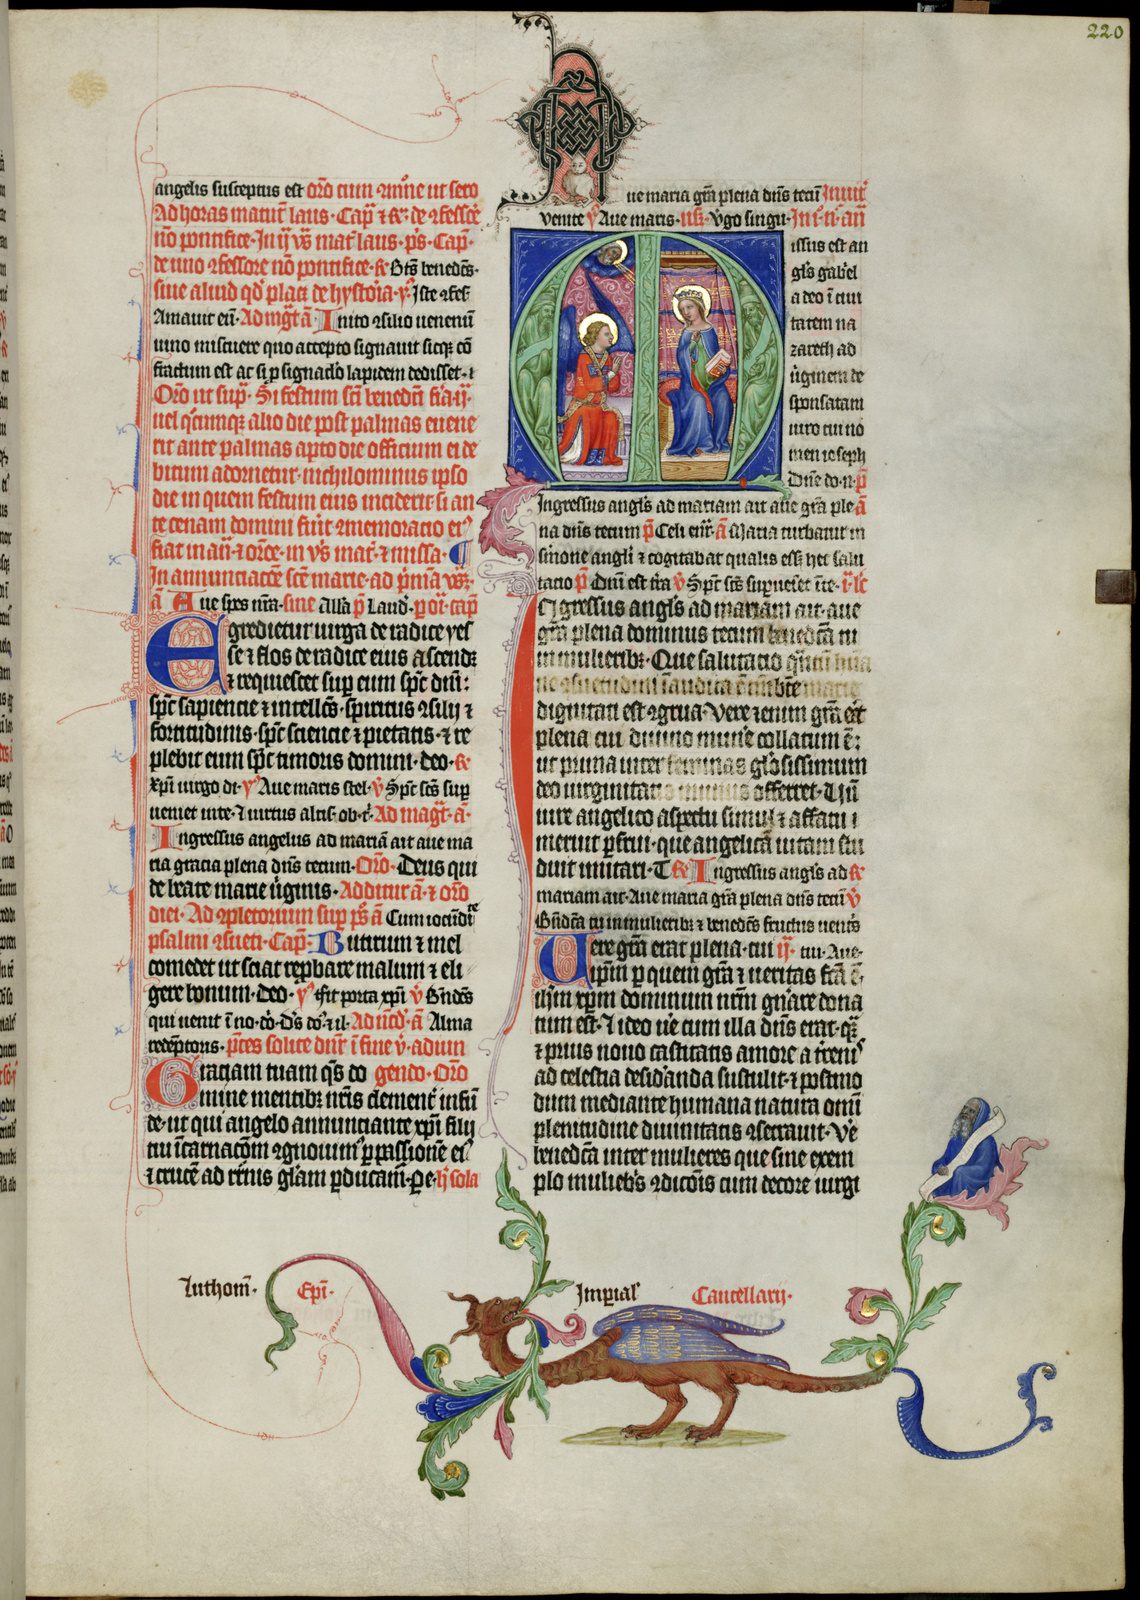 220
angelis susceptus est orõ cum ɔmũne ut sero
Ad horas matuĩ laus · Capľ ⁊ ꝶ · de ɔfessoꝛe
nõ pontifice · In ij vꝭ mat̃ laus · pꝭ · Cap̃ ·
de uno ɔfessore nõ pontifice · ꝶ Btš benedc̃s ·
siue aliud qď placꝫ de hystoria · ꝟ Iste ɔfes̃
Amauit eũ · Ad mgt̃ ã · Inito ɔsilio uenenũ
uino miscuere quo accepto signauit sicqꝫ cõ
fractum est ac si ꝓ signac̃lo lapidem dedisset · ⁊
Orõ ut sup̃ · Si festum sc̃i benedc̃i fr̃ia · ij ·
uel qⁱcumqꝫ alio die post palmas euene
rit ante palmas apto die officium ei de
bitum adornetur · nichilominus ipso
die in quem festum eius inciderit · si an
te cenam domini fuit̃ ɔmemoracio eiꝰ
fiat in matĩ · ⁊ orõce · in vꝭ mat̃ · ⁊ missa · ¶
In annunciacõe sc̃e marie · ad p̃mã vꝭꝑ ·
ã Aue spes nr̃a · sine alľa p̃ Laud̃ · p̃ oĩ · cap̃
Egredietur uirga de radice yes
se ⁊ flos de radice eius ascendꝫ
⁊ requiescet suꝑ eum spc̃ dnĩ :
spc̃ sapiencie ⁊ intellcũs · spiritus ɔsilij ⁊
fortitudinis · spc̃ sciencie ⁊ pietatis · ⁊ re
plebit eum spc̃ timoris domini · deo · ꝶ
xp̃i uirgo di · ꝟ Aue maris stel · ꝟ Spc̃ sc̃s suꝑ
ueniet in te · ⁊ uirtus altis̃ · ob · t̃ · Ad mag̃t · ã ·
Ingressus angelus ad mariã ait aue ma
ria gracia plena dñs tecum · Orõ · Deus qui
de beate marie ũginis · Additur ã · ⁊ orõ
diei · Ad ɔpletorium suꝑ pꝭ ã Cum iocũditᵗᵉ
psalmi ɔsueti · Cap̃ · Butirum ⁊ mel
comedet ut sciat reꝓbare malum ⁊ eli
gere bonum · deo · ꝟ Fit porta xp̃i ꝟ Bñdc̃s
qui uenit ĩ no · dõ · Dꝰ dõ · ⁊ il · Ad nũcď · ã Alma
redeptoris · p̃ces solite dnr̃ ĩ fine ꝟ · adium
Graciam tuam qꝭ do gendo · Orõ
mine mentibꝫ nr̃is clementer infũ
de · ut qui angelo annunciante xp̃i filij
tui ĩcarnacõem ɔgnouimꝰ ꝑ passionẽ eiꝰ
⁊ crucẽ ad rr̃nis gľiam ꝑducamꝰ · Ꝑe · ħ sola
Aue maria grã plena dñs tecũ Inuit̃
venite ꝟ Aue maris · nš · Vgo singu · In · i · n · añ
Missus est an
gľs gab̃el
a deo ĩ ciui
tatem na
zareth ad
ũginem de
sponsatam
uiro cui no
men ioseph
Dñe do · n · p̃
Ingressus angľs ad mariam ait aue grã ple ã
na dñs tecum p̃ Celi enr̃ · ã Maria turbatur in
s̃mone angľi ⁊ cogitabat qualis esꝫ hec salu
tacio p̃ Dñi est tr̃a ꝟ Spc̃ sc̃s suꝑueĩet ĩ te · i · lc̃
Ingressus angľs ad mariam ait · aue
grã plena dominus tecum benedc̃a tu
in mulieribꝫ · Que salutacio
dignitati est ɔgrua · Vere etenim grã erat
plena cui diuino mun̾e collatum ẽ :
ut prima inter feminas gľosissimum
deo uirginitatis munus offerret · Uñ
iure angelico aspectu simul ⁊ affatu
meruit ꝑfrui · que angelicã uitam stu
duit imitari · T ꝶ Ingressus angľs ad ꝶ
mariam ait · Aue maria grã plena dñs tecũ ꝟ
Bñdc̃a tu in mulieribꝫ ⁊ benedc̃s fructus uentrꝭ
Uere grã erat plena · cui ij · tui · Aue ·
ipm̃ ꝑ quem grã ⁊ ueritas fc̃a ẽ
ihm̃ xp̃m dominum nr̃m gñare dona
tum est · ⁊ ideo ũe cum illa dñs erat · qꝫ
⁊ prius nouo castitatis amore a trenis
ad celestia desid̾anda sustulit · ⁊ postmo
dum mediante humana natura omĩ
plenitudine diuinitatis ɔsecrauit · Ve
benedc̃a inter mulieres que sine exem
plo mulieb̾s ɔdicõis cum decore uirgi
Luthom̃ · Ep̃i · Imꝑialꝭ Cancellarij ·